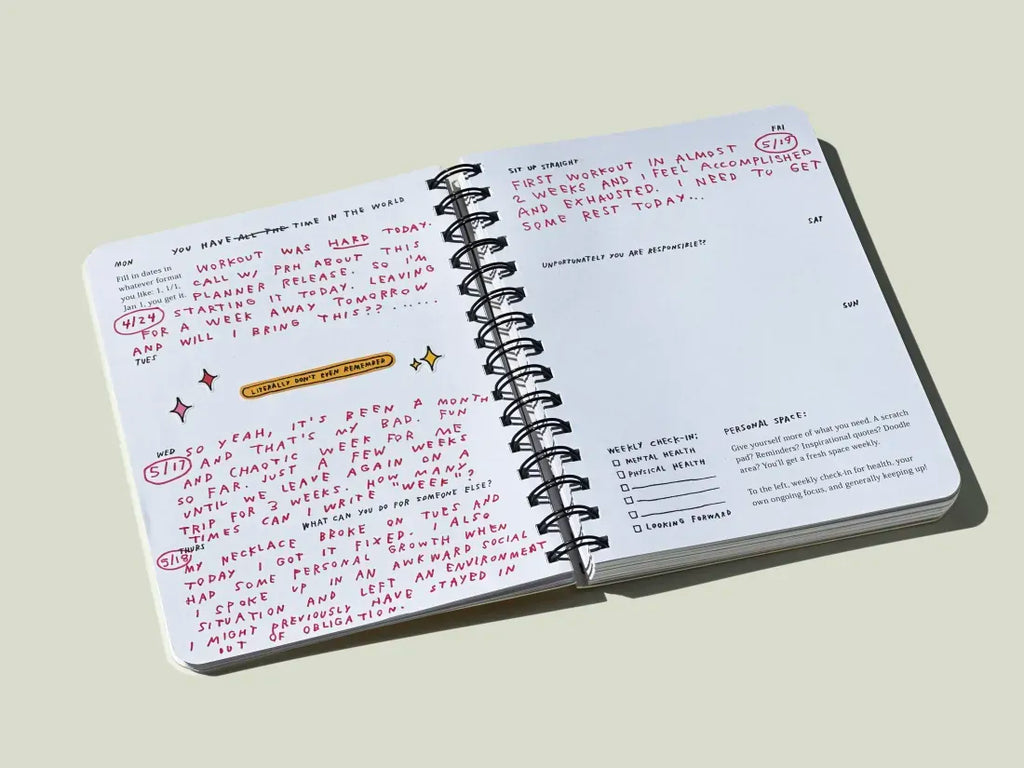 YOU HAVE ALL THE TIME IN THE WORLD
MON
Fill in dates in
whatever format
you like: 1, 1/1,
Jan 1, you get it.
4/24
WORKOUT WAS HARD TODAY.
CALL W/ PRH ABOUT THIS
PLANNER RELEASE. SO I'M
STARTING IT TODAY. LEAVING
FOR A WEEK AWAY TOMORROW
AND WILL I BRING THIS?? ......
TUES
LITERALLY DON'T EVEN REMEMBER
WED
5/17
SO YEAH, IT'S BEEN A MONTH
AND THAT'S MY BAD. FUN
AND CHAOTIC WEEK FOR ME
SO FAR. JUST A FEW WEEKS
UNTIL WE LEAVE AGAIN ON A
TRIP FOR 3 WEEKS. HOW MANY
TIMES CAN I WRITE "WEEK"?
WHAT CAN YOU DO FOR SOMEONE ELSE?
THURS
5/18
MY NECKLACE BROKE ON TUES AND
TODAY I GOT IT FIXED. I ALSO
HAD SOME PERSONAL GROWTH WHEN
I SPOKE UP IN AN AWKWARD SOCIAL
SITUATION AND LEFT AN ENVIRONMENT
I MIGHT PREVIOUSLY HAVE STAYED IN
OUT OF OBLIGATION.
SIT UP STRAIGHT
FRI
5/19
FIRST WORKOUT IN ALMOST
2 WEEKS AND I FEEL ACCOMPLISHED
AND EXHAUSTED. I NEED TO GET
SOME REST TODAY...
SAT
UNFORTUNATELY YOU ARE RESPONSIBLE??
SUN
WEEKLY CHECK-IN:
MENTAL HEALTH
PHYSICAL HEALTH
LOOKING FORWARD
PERSONAL SPACE:
Give yourself more of what you need. A scratch
pad? Reminders? Inspirational quotes? Doodle
area? You'll get a fresh space weekly.
To the left, weekly check-in for health, your
own ongoing focus, and generally keeping up!